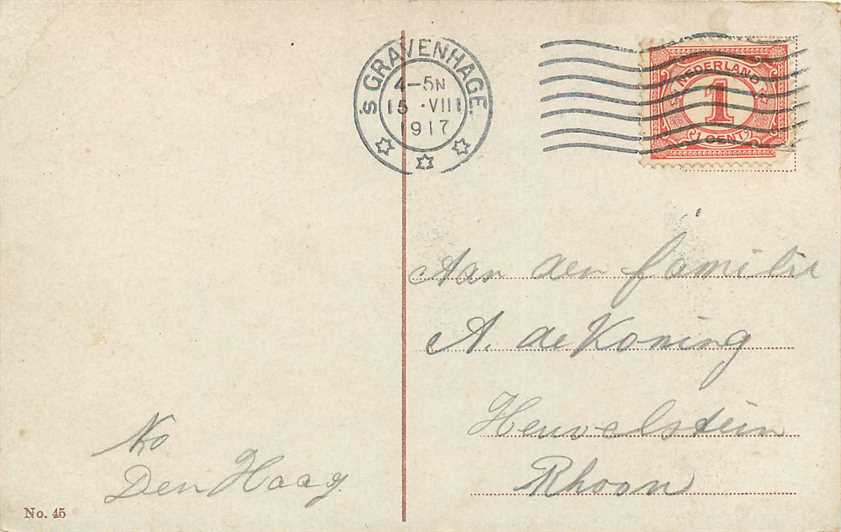 's GRAVENHAGE.
4-5N
15 .VIII
1917
NEDERLAND
1
CENT
Aan den familie
A. de Koning
Heuvelstein
Rhoon
Ko
Den Haag.
No. 45